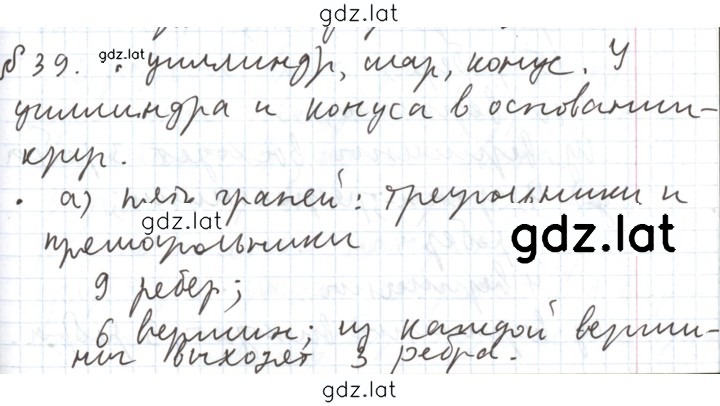 gdz.lat
№ 39. gdz.lat • цилиндр, шар, конус. У
цилиндра и конуса в основании -
круг.
• а) пять граней: треугольники и
gdz.lat
прямоугольники
gdz.lat
9 ребер;
6 вершин; из каждой верши-
ны выходят 3 ребра.
gdz.lat